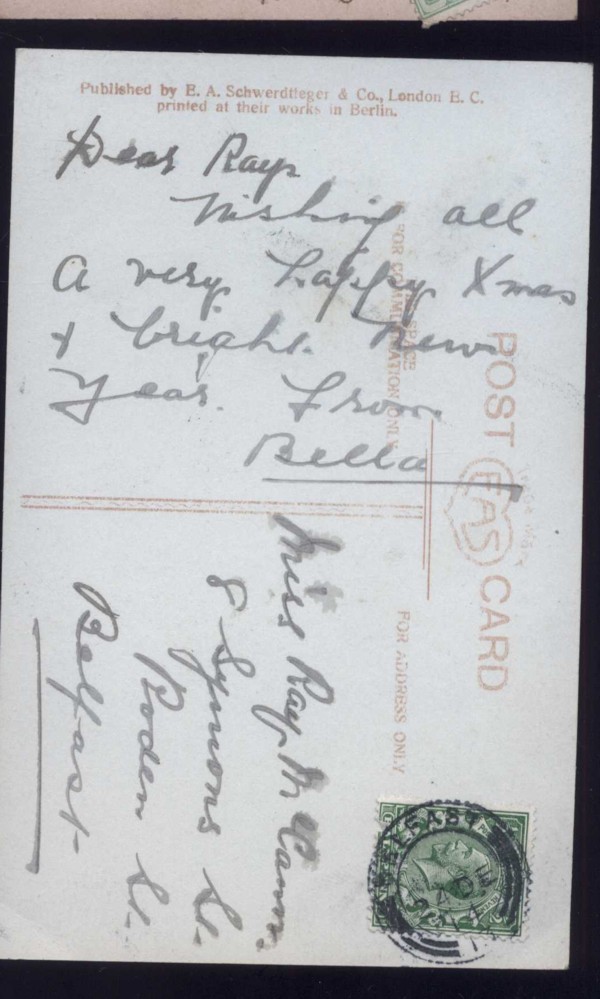 Published by E. A. Schwerdtfeger & Co., London E. C.
printed at their works in Berlin.
Dear Ray
Wishing all
a very happy Xmas
+ bright New
Year. From
Bella
SPACE
FOR COMMUNICATION ONLY
POST CARD
EAS
FOR ADDRESS ONLY
Miss Ray McCann.
8 Symons St.
Roden St.
Belfast
BELFAST